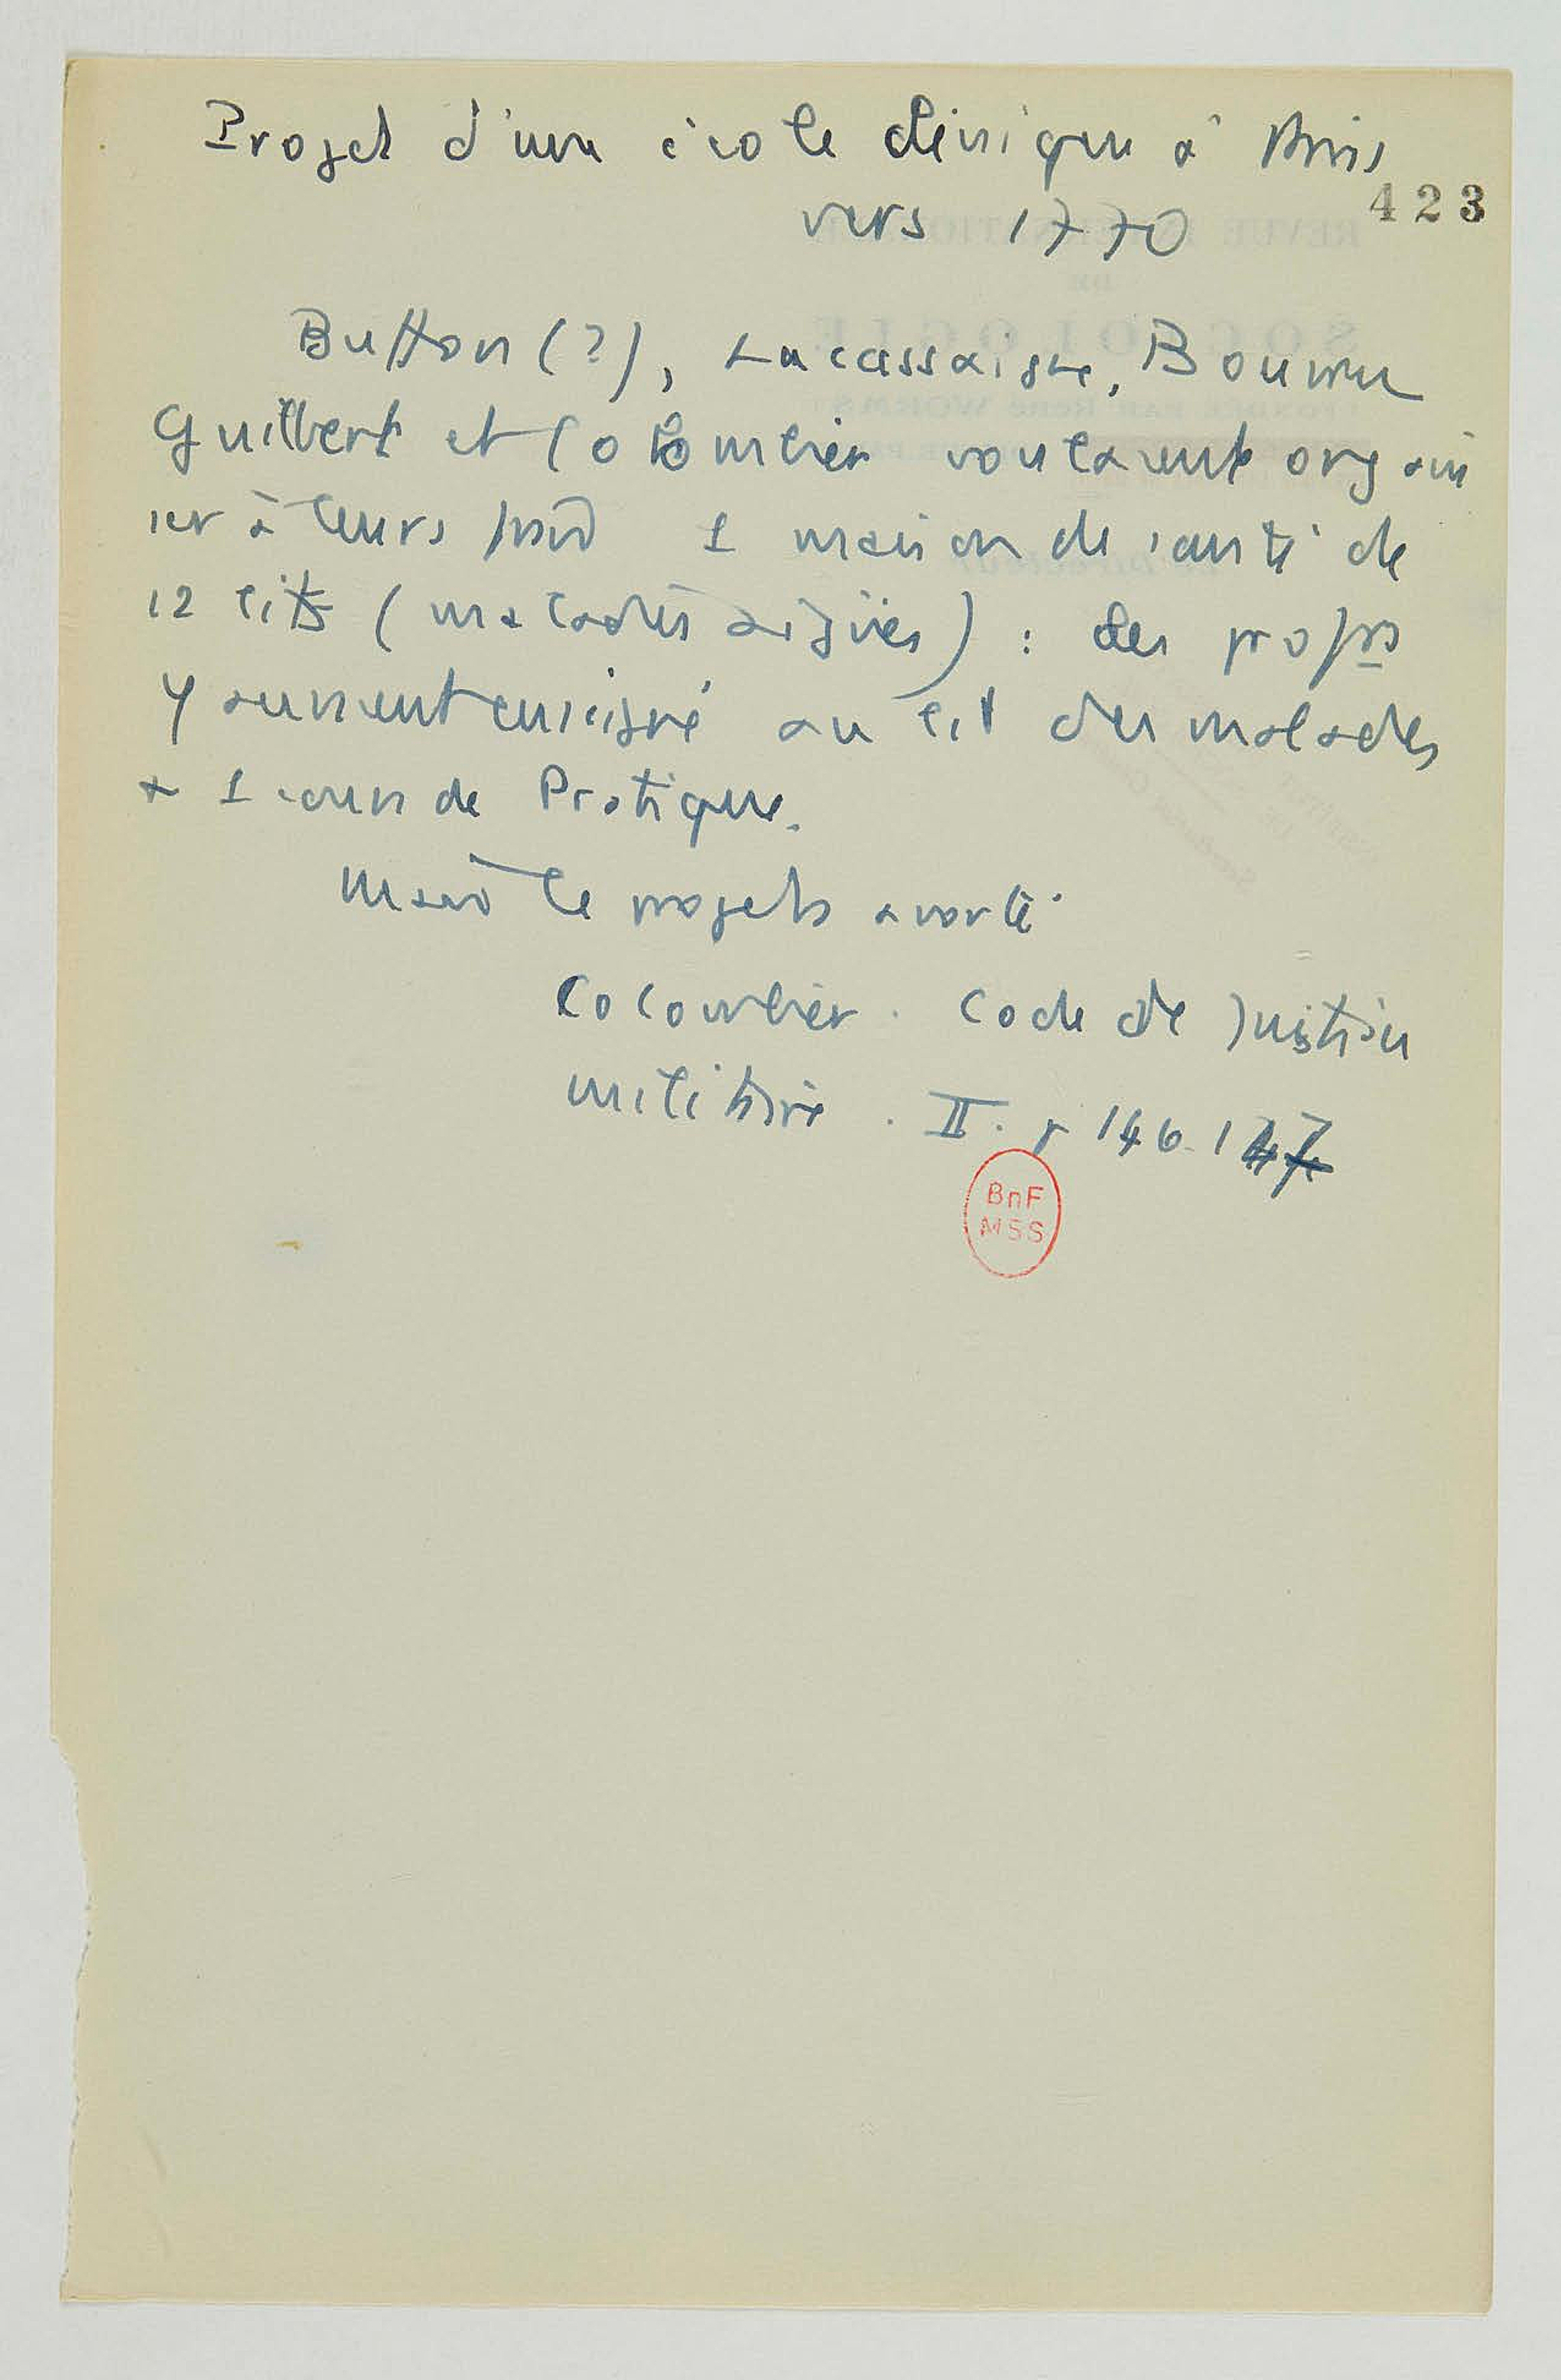 Projet d'une école clinique à Paris
423
vers 1770
Buffon (?), Lacassaigne, Bouvard
Guilbert et Colombier voulaient organi
ser à leurs frais 1 maison de santé de
12 lits (maladies aigües) : les profrs
y auraient enseigné au lit des malades
+ 1 cours de Pratique.
Mais le projet a avorté
Colombier. Code de Justice
militaire. II. p 146. 147
BnF
MSS